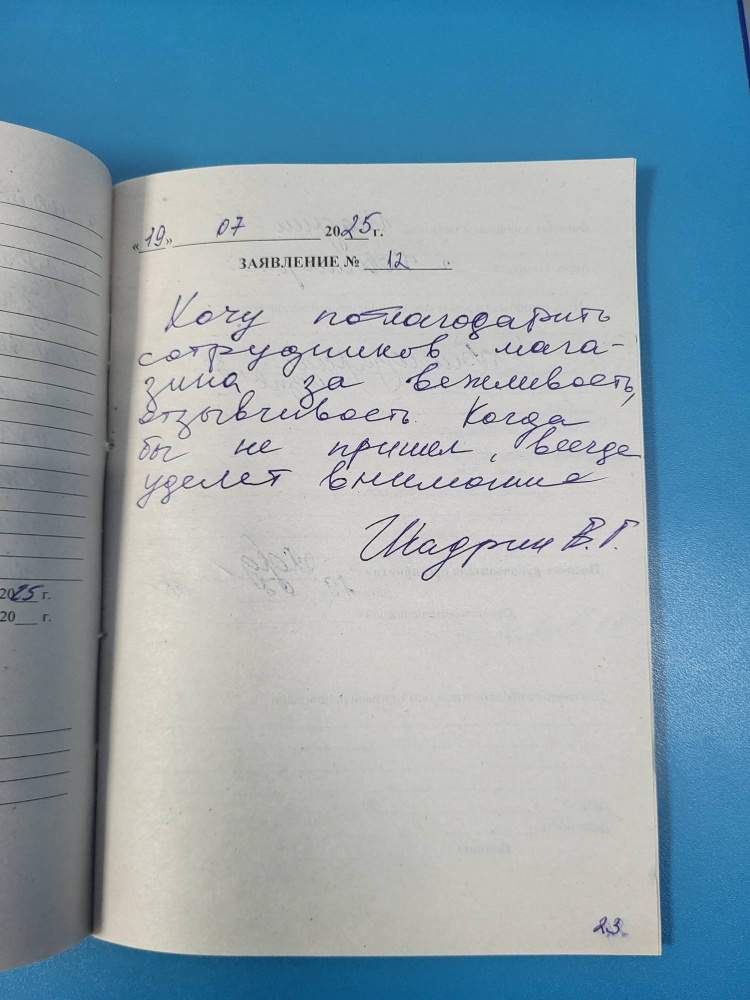 «19» 07 2025 г.
ЗАЯВЛЕНИЕ № 12
Хочу поблагодарить
сотрудников мага-
зина за вежливость,
отзывчивость. Когда
бы не пришел, всегда
уделят внимание
Шадрин В.Г.
2025 г.
20 г.
23